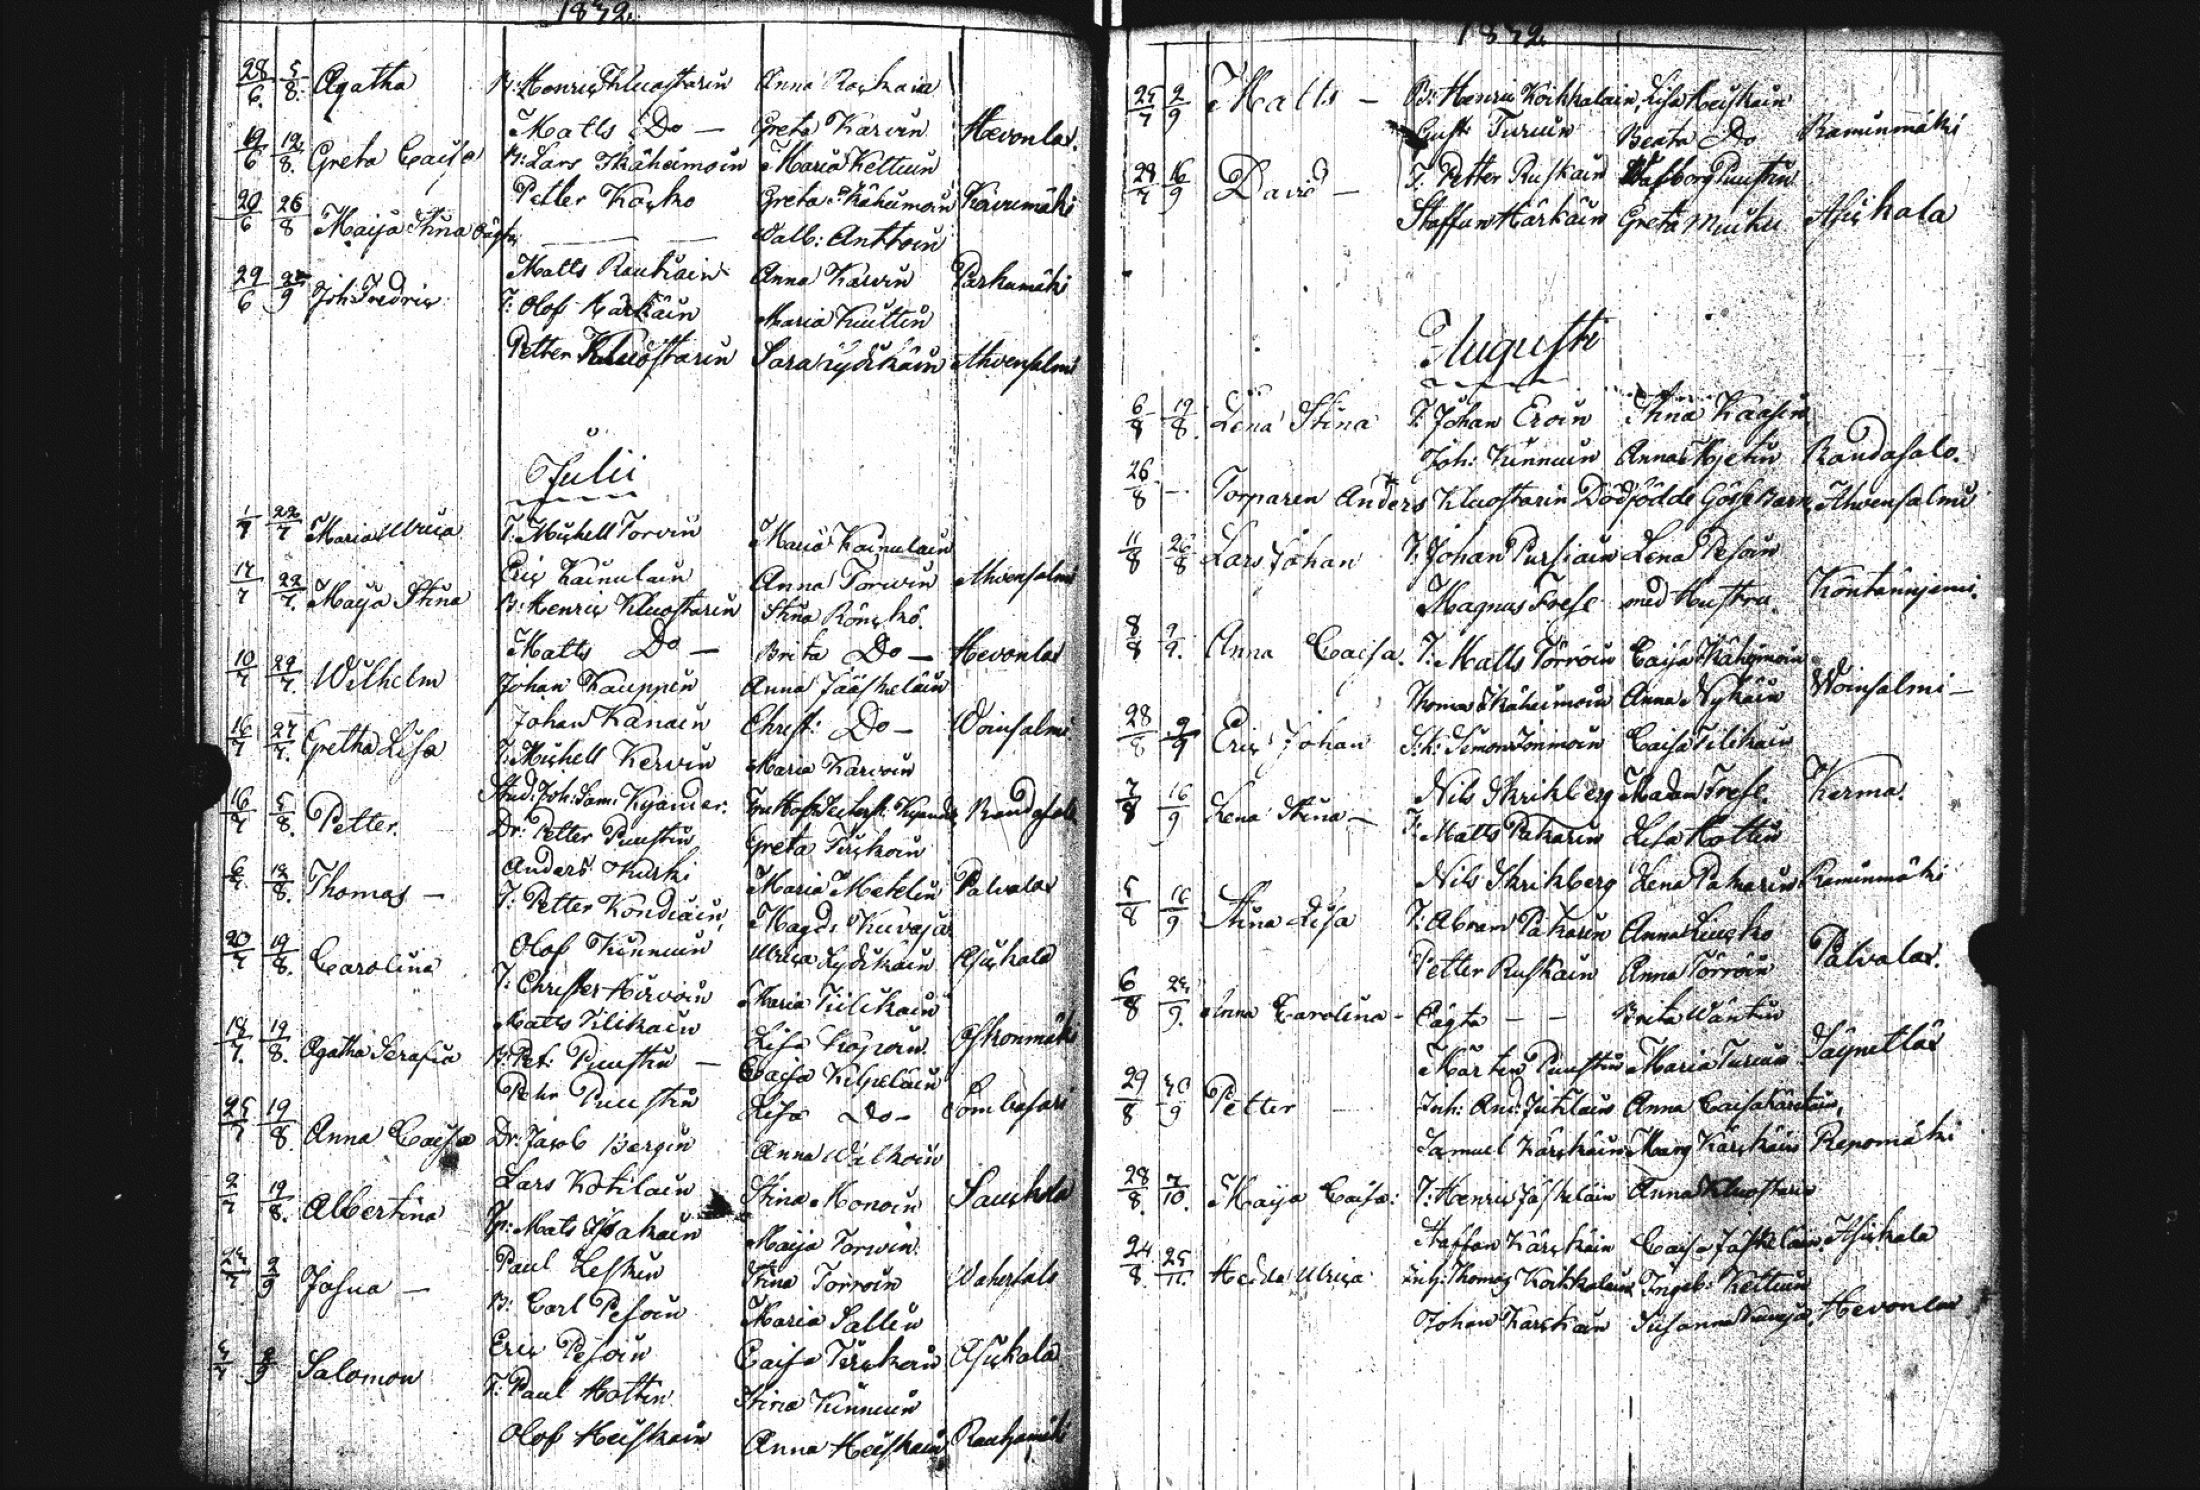 1832.
28/6. 5/8. Agatha B: Henric Kluostarin Anna Raskain
Matts Do — Greta Karvin Hevonlax.
19/6 12/8. Greta Caisa B: Lars Ikäheimoin Maria Kettuin
Petter Kasko Greta Ikäheimoin Kaivumäki
20/6 26/8 Maija Stina Oägta — — Walb: Anttoin
Matts Rautiain Anna Karvin Parkumäki
29/6 Joh: Fredric T: Olof Kärkäin Maria Kuittin
Petter Kluostarin Sara Lydikäin Ahvensalmi
Julii
1/7 22/7 Maria Ulrica T: Michell Torvin Maria Kainulain
Eric Kainulain Anna Torvin Ahvensalmi
17/7 22/7. Maija Stina B: Henric Kluostarin Stina Rönckö.
Matts Do — Brita Do — Hevonlax
10/7 29/7. Wilhelm Johan Kauppin Anna Jääskeläin
Johan Kanain Christ: Do — Woinsalmi
16/7 27/7. Gretha Lisa T: Michell Kervin Maria Karvoin
Stud: Joh: Sam: Kyander. Randasalo
16/7 5/8. Petter. Dr: Petter Puustin Greta Tirckoin
Anders Kurki Maria Matelin Palvalax
6/7 12/8. Thomas — T: Petter Kondiain, Magd: Kuvaja
Olof Kinnuin Ulrica Lydikäin Asickala
20/7 19/8. Carolina T: Christer Hirvoin Maria Tiilikain
Matts Tilikain Lisa Kopoin Oskonmäki
18/7. 19/8. Agatha Serafia B: Pet: Puustin — Caisa Kilpeläin
Pehr Puustin Lisa Do — Sombasari
25/7 19/8. Anna Caisa Dr: Jacob Bergin Anna Walkoin
Lars Kotilain Stina Monoin Sauckola
2/7 19/8. Albertina Tp: Mats Makain Maija Torwin
Paul Leskin Stina Törröin Wahersalo
2/9 Josua — B: Carl Pesoin Maria Sallin
Eric Pesoin Caisa Tirckoin Asickala
Salomon T: Paul Hottin Stina Kinnuin
Olof Heiskain Anna Heiskain Rauhamäki
1832
25/7 2/9 Matts — B: Henric Koikkalain, Lisa Heiskain
Gust: Turuin Beata Do Raminmäki
29/7 16/9 David — T: Petter Ruskain Walborg Puustin
Staffan Härkäin Greta Muiku Asickala
Augusti
6/8 19/8. Lena Stina T: Johan Eroin Stina Kaasin
Joh: Kinnuin Anna Mjetin Randasalo.
26/8 — Torparen Anders Kluostarin Dödfödde Gosse Barn, Ahvensalmi
11/8 26/8 Lars Johan T: Johan Pursiain Lena Pesoin
Magnus Frese med Hustru. Kontaniemi.
8/8 9/9. Anna Caisa. T: Matts Törröin Caisa Ikäheimoin
Thomas Ikäheimoin Anna Nykäin Woinsalmi —
28/8 9/9 Eric Johan I: h: Simon Immoin Caisa Tilikain
Nils Skrikberg Madam Frese. Kerma.
7/8 16/9 Lena Stina — T: Matts Pakarin Lisa Hottin
Nils Skrikberg Lena Pakarin Raminmäki
5/8 16/9 Stina Lisa T: Abram Pakarin Anna Liucko
Petter Ruskain Anna Törröin Palvalax.
6/8 Anna Carolina — Oägta — — Brita Wäntin
Mårten Puustin Maria Turuin Säynetlax
29/8 30/9 Petter — Inh: And: Jutilain Anna Caisa
Samuel Kärckäin Marg Kärckäin Repomäki
28/8. 7/10. Maija Caisa: T: Henric Jäskeläin Anna Kluostarin
Staffan Kärckäin Caisa Jäskeläin. Asickala
24/8. 25/11. Hedda Ulrica Inhy: Thomas Koikkalain Ingeb: Kettuin
Johan Karckain Susanna Kuvaja. Hevonlax